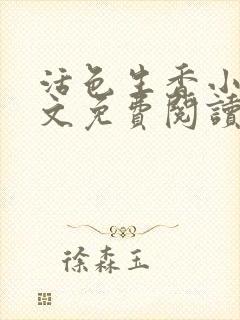 活色生香小
文免費閱讀
徐森玉